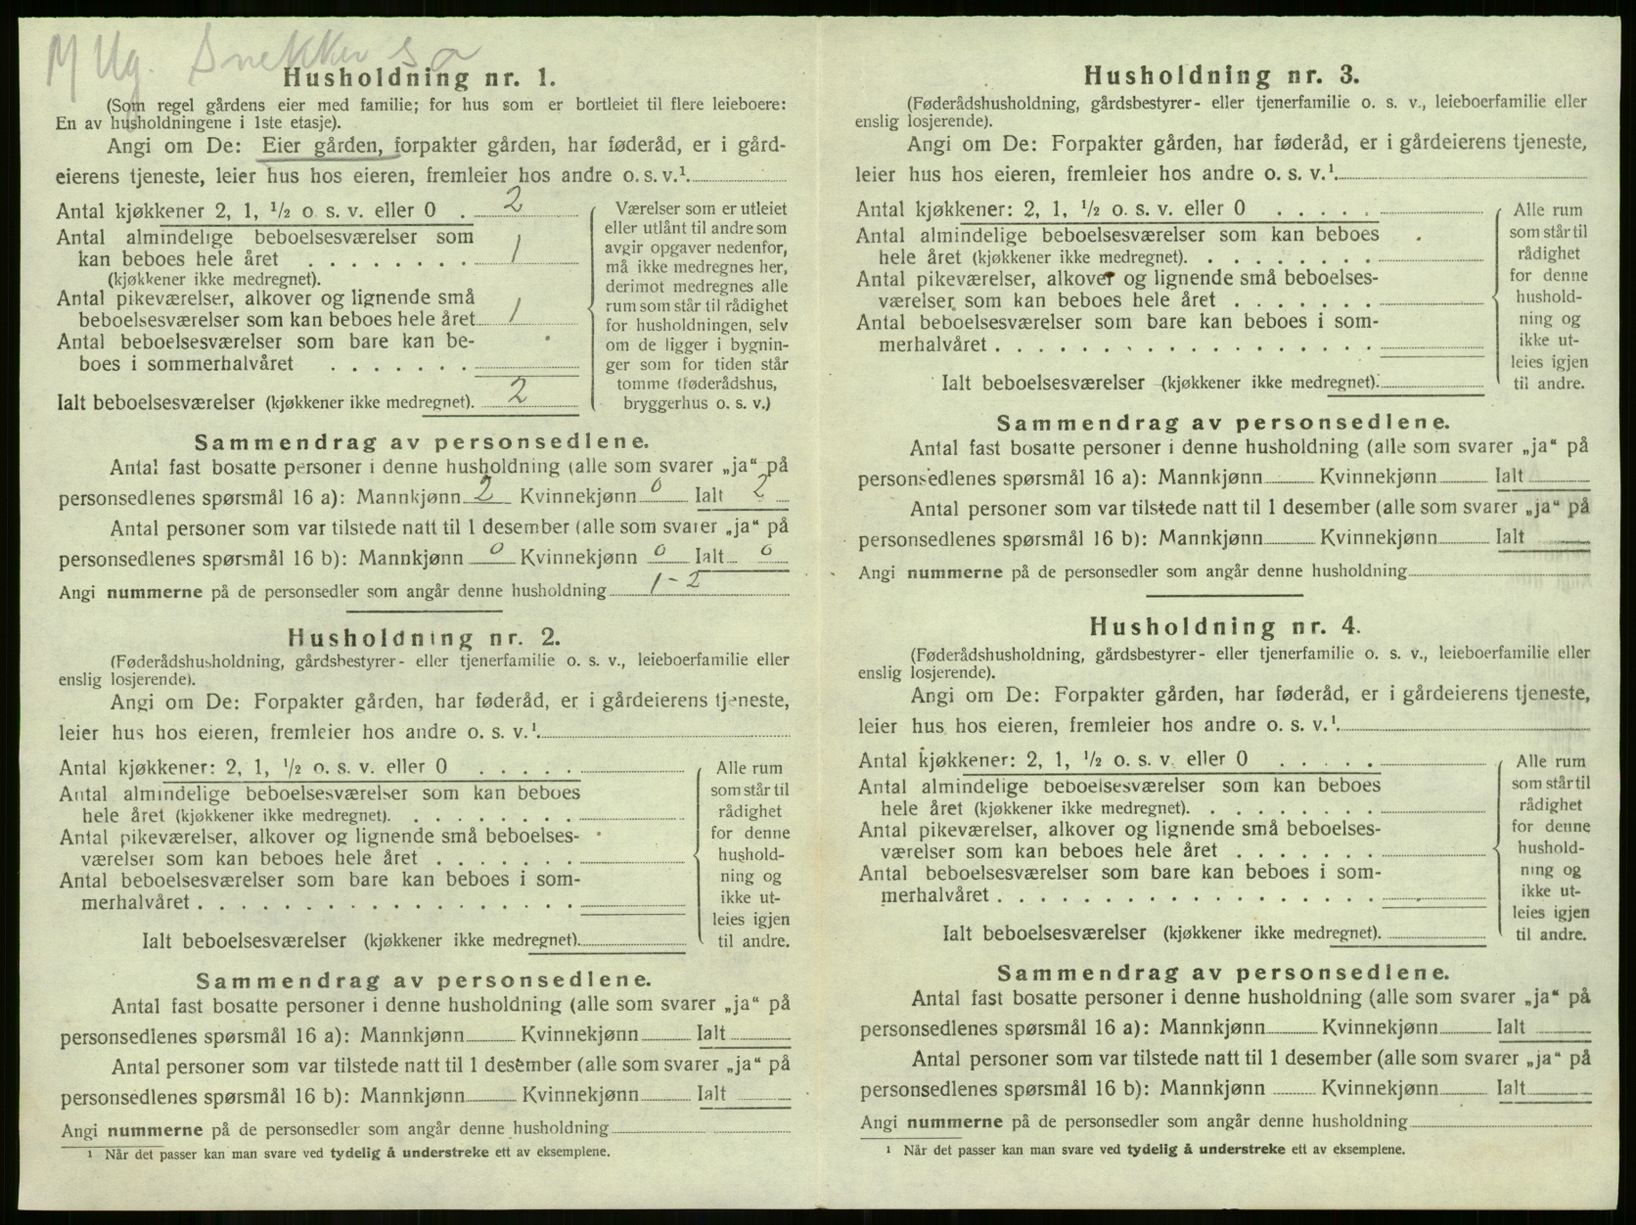 M Ug. Snekker sø
Husholdning nr. 1.
(Som regel gårdens eier med familie; for hus som er bortleiet til flere leieboere:
En av husholdningene i 1ste etasje).
Angi om De: Eier gården, forpakter gården, har føderåd, er i gård-
eierens tjeneste, leier hus hos eieren, fremleier hos andre o. s. v.¹.
Antal kjøkkener 2, 1, ½ o. s. v. eller 0 . 2
Antal almindelige beboelsesværelser som
kan beboes hele året . . . . . . . . 1
(kjøkkener ikke medregnet).
Antal pikeværelser, alkover og lignende små
beboelsesværelser som kan beboes hele året 1
Antal beboelsesværelser som bare kan be-
boes i sommerhalvåret . . . . . . .
Ialt beboelsesværelser (kjøkkener ikke medregnet). 2
Værelser som er utleiet
eller utlånt til andre som
avgir opgaver nedenfor,
må ikke medregnes her,
derimot medregnes alle
rum som står til rådighet
for husholdningen, selv
om de ligger i bygnin-
ger som for tiden står
tomme (føderådshus,
bryggerhus o. s. v.)
Sammendrag av personsedlene.
Antal fast bosatte personer i denne husholdning (alle som svarer „ja“ på
personsedlenes spørsmål 16 a): Mannkjønn 2 Kvinnekjønn 0 Ialt 2
Antal personer som var tilstede natt til 1 desember (alle som svarer „ja“ på
personsedlenes spørsmål 16 b): Mannkjønn 0 Kvinnekjønn 0 Ialt 0
Angi nummerne på de personsedler som angår denne husholdning 1-2
Husholdning nr. 2.
(Føderådshusholdning, gårdsbestyrer- eller tjenerfamilie o. s. v., leieboerfamilie eller
enslig losjerende).
Angi om De: Forpakter gården, har føderåd, er i gårdeierens tjeneste,
leier hus hos eieren, fremleier hos andre o. s. v.¹.
Antal kjøkkener: 2, 1, ½ o. s. v. eller 0 . . . . .
Antal almindelige beboelsesværelser som kan beboes
hele året (kjøkkener ikke medregnet). . . . . . . .
Antal pikeværelser, alkover og lignende små beboelses-
værelser som kan beboes hele året . . . . . .
Antal beboelsesværelser som bare kan beboes i som-
merhalvåret . . . . . . . . . . . . . . .
Ialt beboelsesværelser (kjøkkener ikke medregnet).
Alle rum
som står til
rådighet
for denne
hushold-
ning og
ikke ut-
leies igjen
til andre.
Sammendrag av personsedlene.
Antal fast bosatte personer i denne husholdning (alle som svarer „ja“ på
personsedlenes spørsmål 16 a): Mannkjønn Kvinnekjønn Ialt
Antal personer som var tilstede natt til 1 desember (alle som svarer „ja“ på
personsedlenes spørsmål 16 b): Mannkjønn Kvinnekjønn Ialt
Angi nummerne på de personsedler som angår denne husholdning
¹ Når det passer kan man svare ved tydelig å understreke ett av eksemplene.
Husholdning nr. 3.
(Føderådshusholdning, gårdsbestyrer- eller tjenerfamilie o. s. v., leieboerfamilie eller
enslig losjerende).
Angi om De: Forpakter gården, har føderåd, er i gårdeierens tjeneste,
leier hus hos eieren, fremleier hos andre o. s. v.¹.
Antal kjøkkener: 2, 1, ½ o. s. v. eller 0 . . . . .
Antal almindelige beboelsesværelser som kan beboes
hele året (kjøkkener ikke medregnet). . . . . . . .
Antal pikeværelser, alkover og lignende små beboelses-
værelser som kan beboes hele året . . . . . . .
Antal beboelsesværelser som bare kan beboes i som-
merhalvåret . . . . . . . . . . . . . . .
Ialt beboelsesværelser (kjøkkener ikke medregnet).
Alle rum
som står til
rådighet
for denne
hushold-
ning og
ikke ut-
leies igjen
til andre.
Sammendrag av personsedlene.
Antal fast bosatte personer i denne husholdning (alle som svarer „ja“ på
personsedlenes spørsmål 16 a): Mannkjønn Kvinnekjønn Ialt
Antal personer som var tilstede natt til 1 desember (alle som svarer „ja“ på
personsedlenes spørsmål 16 b): Mannkjønn Kvinnekjønn Ialt
Angi nummerne på de personsedler som angår denne husholdning
Husholdning nr. 4.
(Føderådshusholdning, gårdsbestyrer- eller tjenerfamilie o. s. v., leieboerfamilie eller
enslig losjerende).
Angi om De: Forpakter gården, har føderåd, er i gårdeierens tjeneste,
leier hus hos eieren, fremleier hos andre o. s. v.¹.
Antal kjøkkener: 2, 1, ½ o. s. v. eller 0 . . . . .
Antal almindelige beboelsesværelser som kan beboes
hele året (kjøkkener ikke medregnet). . . . . . . .
Antal pikeværelser, alkover og lignende små beboelses-
værelser som kan beboes hele året . . . . . . .
Antal beboelsesværelser som bare kan beboes i som-
merhalvåret . . . . . . . . . . . . . . .
Ialt beboelsesværelser (kjøkkener ikke medregnet).
Alle rum
som står til
rådighet
for denne
hushold-
ning og
ikke ut-
leies igjen
til andre.
Sammendrag av personsedlene.
Antal fast bosatte personer i denne husholdning (alle som svarer „ja“ på
personsedlenes spørsmål 16 a): Mannkjønn Kvinnekjønn Ialt
Antal personer som var tilstede natt til 1 desember (alle som svarer „ja“ på
personsedlenes spørsmål 16 b): Mannkjønn Kvinnekjønn Ialt
Angi nummerne på de personsedler som angår denne husholdning
¹ Når det passer kan man svare ved tydelig å understreke ett av eksemplene.